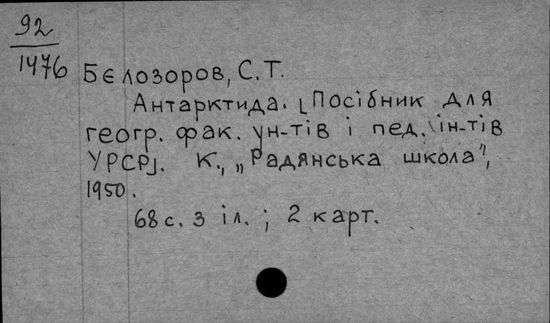 92
1476
Бєлозоров, С. Т.
Антарктида. [Посібник для
геогр. фак. ун-тів і пед. ін-тів
УРСР]. К., „Радянська школа",
1950.
68 с. з іл. ; 2 карт.